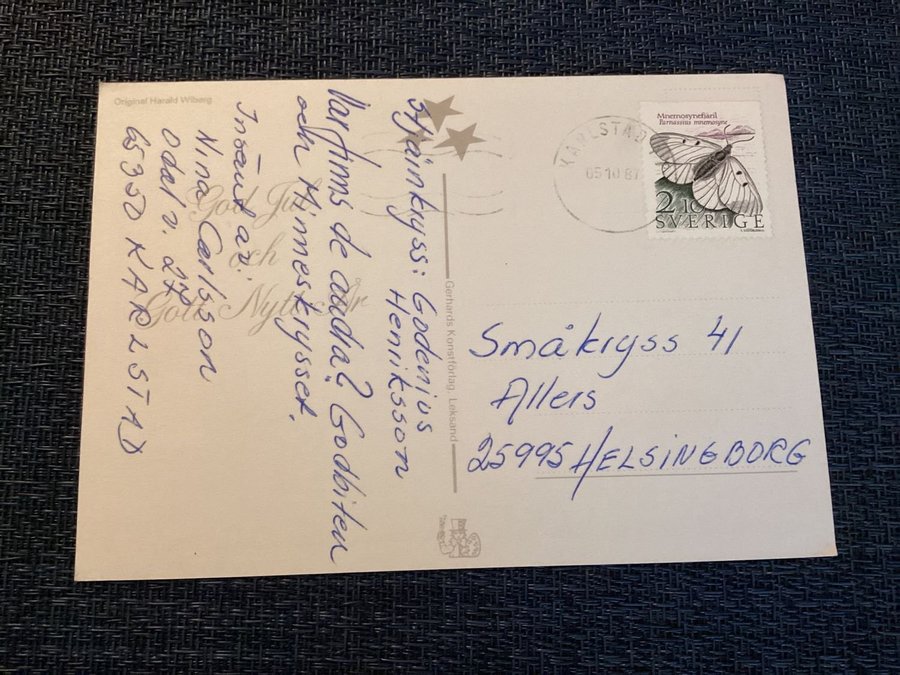 Original Harald Wiberg
Stjärnkryss: Godenius
Henriksson
Var finns de andra? Godbiten
och Minneskrysset.
Insänt av:
Nina Carlsson
Odal v. 27
65350 KARLSTAD
God Jul
och
Gott Nytt År
Gerhards Konstförlag, Leksand
KARLSTAD
05 10 87
Mnemosynefjäril
Parnassius mnemosyne
2.10
SVERIGE
Småkryss 41
Allers
25995 HELSINGBORG